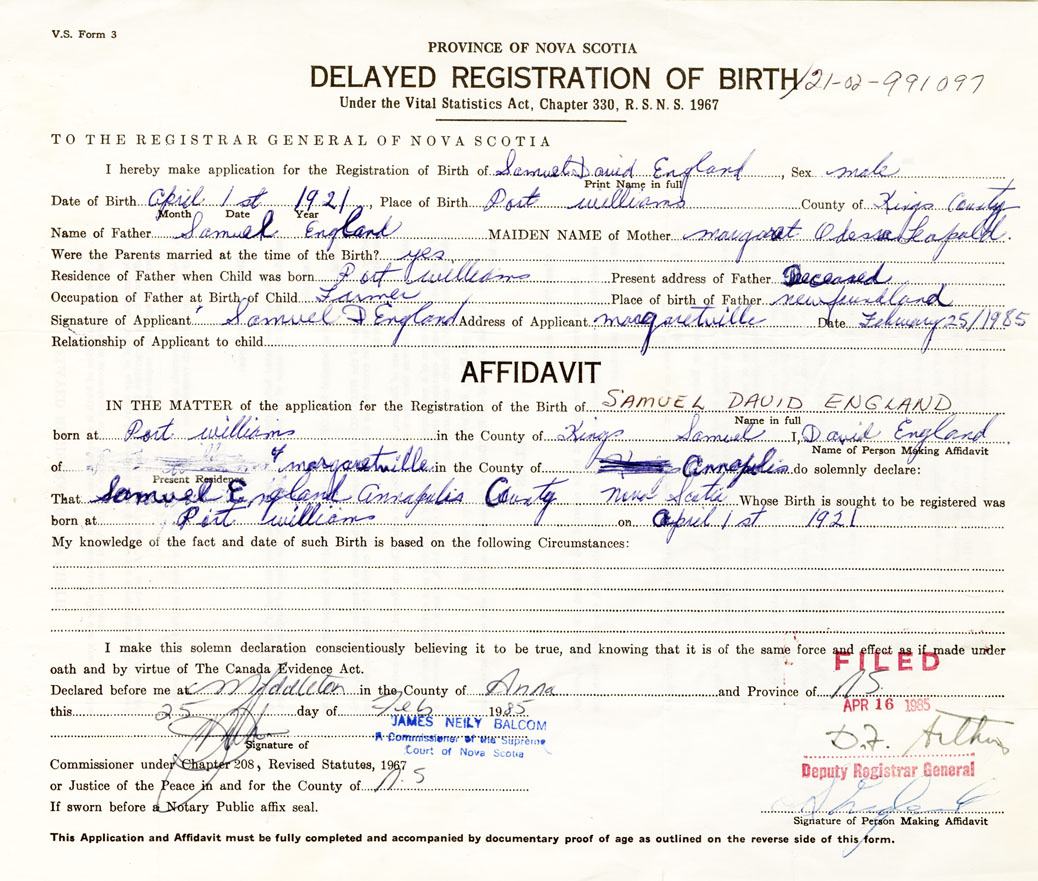 V.S. Form 3
PROVINCE OF NOVA SCOTIA
DELAYED REGISTRATION OF BIRTH 21-02-991097
Under the Vital Statistics Act, Chapter 330, R.S.N.S. 1967
TO THE REGISTRAR GENERAL OF NOVA SCOTIA
I hereby make application for the Registration of Birth of Samuel David England, Sex male
Print Name in full
Date of Birth April 1st 1921, Place of Birth Port williams County of Kings County
Month Date Year
Name of Father Samuel England MAIDEN NAME of Mother margaret Odessa Leopold.
Were the Parents married at the time of the Birth? yes
Residence of Father when Child was born Port williams Present address of Father Deceased
Occupation of Father at Birth of Child Farmer Place of birth of Father newfoundland
Signature of Applicant Samuel D England Address of Applicant margaretville Date February 25/1985
Relationship of Applicant to child
AFFIDAVIT
IN THE MATTER of the application for the Registration of the Birth of SAMUEL DAVID ENGLAND
Name in full
born at Port williams in the County of Kings Samuel I, David England
Name of Person Making Affidavit
of margaretville in the County of Annapolis do solemnly declare:
Present Residence
That Samuel England Annapolis County Nova Scotia Whose Birth is sought to be registered was
born at Port williams on April 1st 1921
My knowledge of the fact and date of such Birth is based on the following Circumstances:
I make this solemn declaration conscientiously believing it to be true, and knowing that it is of the same force and effect as if made under
oath and by virtue of The Canada Evidence Act.
FILED
Declared before me at Middleton in the County of Anna and Province of NS
APR 16 1985
this 25 day of Feb 1985
JAMES NEILY BALCOM
A Commissioner of the Supreme
Court of Nova Scotia
D.F. Arthur
Signature of
Commissioner under Chapter 208, Revised Statutes, 1967
Deputy Registrar General
or Justice of the Peace in and for the County of N.S
If sworn before a Notary Public affix seal.
Signature of Person Making Affidavit
This Application and Affidavit must be fully completed and accompanied by documentary proof of age as outlined on the reverse side of this form.